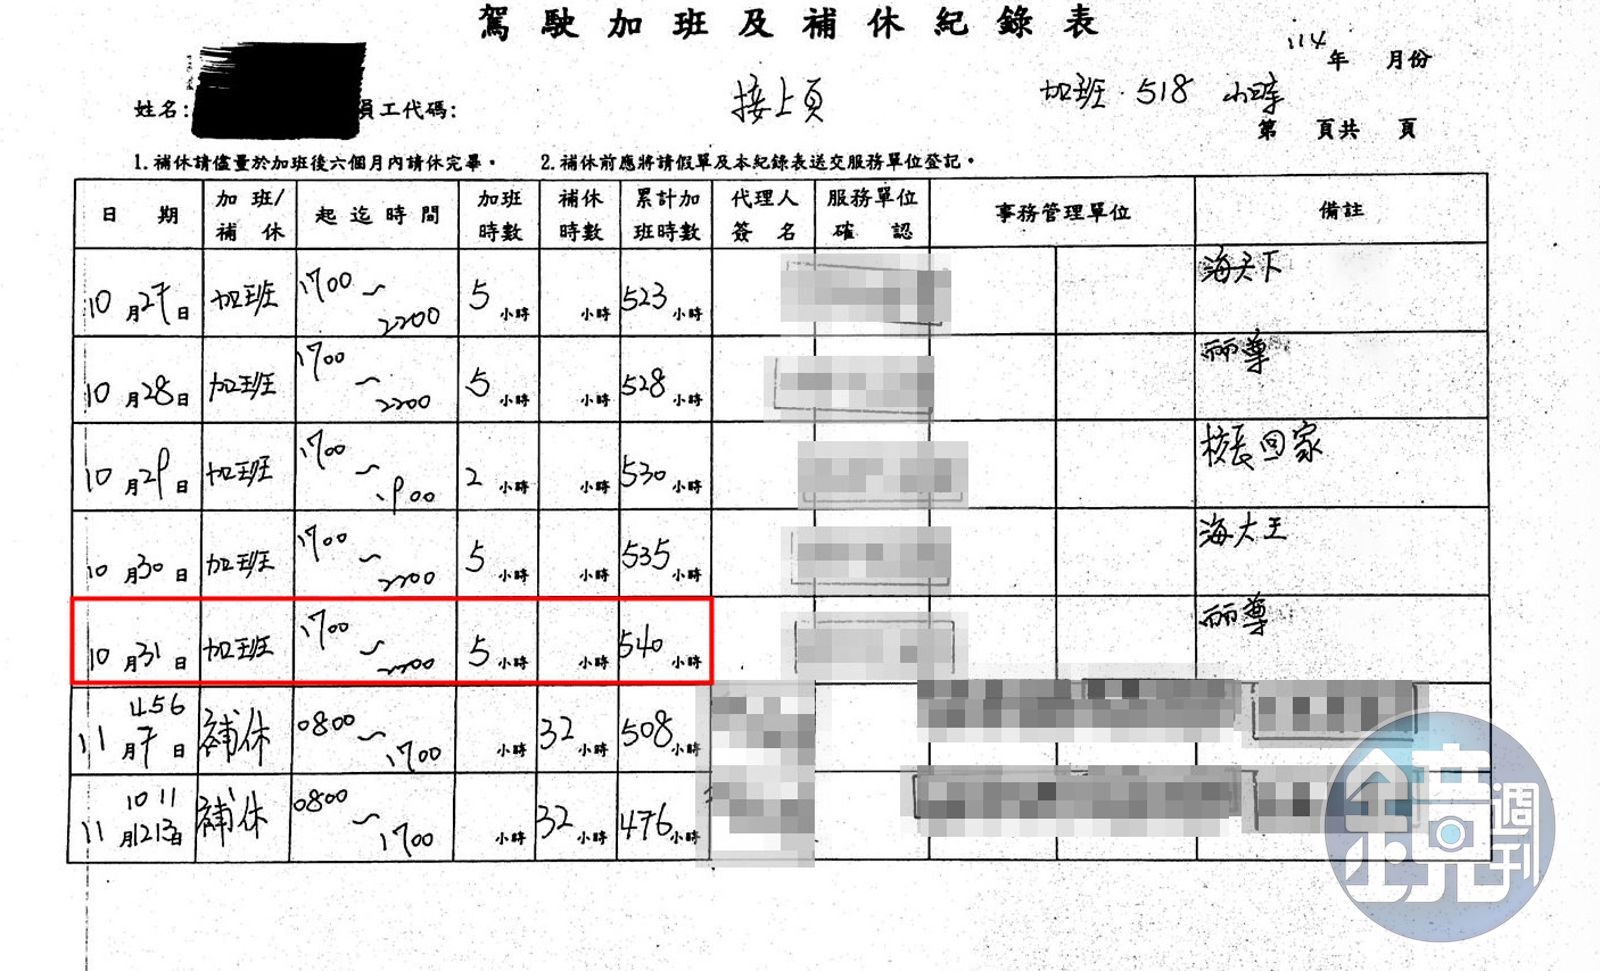 駕駛加班及補休紀錄表
114年 月份
姓名: 員工代碼: 接上頁 加班 518 小時
第 頁共 頁
1.補休請儘量於加班後六個月內請休完畢。 2.補休前應將請假單及本紀錄表送交服務單位登記。
日 期 加班/補休 起迄時間 加班時數 補休時數 累計加班時數 代理人簽名 服務單位確認 事務管理單位 備註
10月27日 加班 1700~2200 5小時 小時 523小時 海天下
10月28日 加班 1700~2200 5小時 小時 528小時 麗尊
10月29日 加班 1700~1900 2小時 小時 530小時 校長回家
10月30日 加班 1700~2200 5小時 小時 535小時 海大王
10月31日 加班 1700~2200 5小時 小時 540小時 麗尊
11月4567日 補休 0800~1700 小時 32小時 508小時
11月10111213日 補休 0800~1700 小時 32小時 476小時
鏡週刊